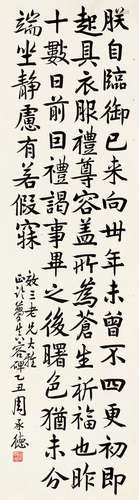 朕自臨御已来向卅餘年未曾不四更初即
起具衣服禮尊容盖所為蒼生祈福也昨
十數日前因禮謁事畢之後曙色猶未分
端坐静慮有若假寐
三老兄大雅
正於夢生容碑乙丑周承德